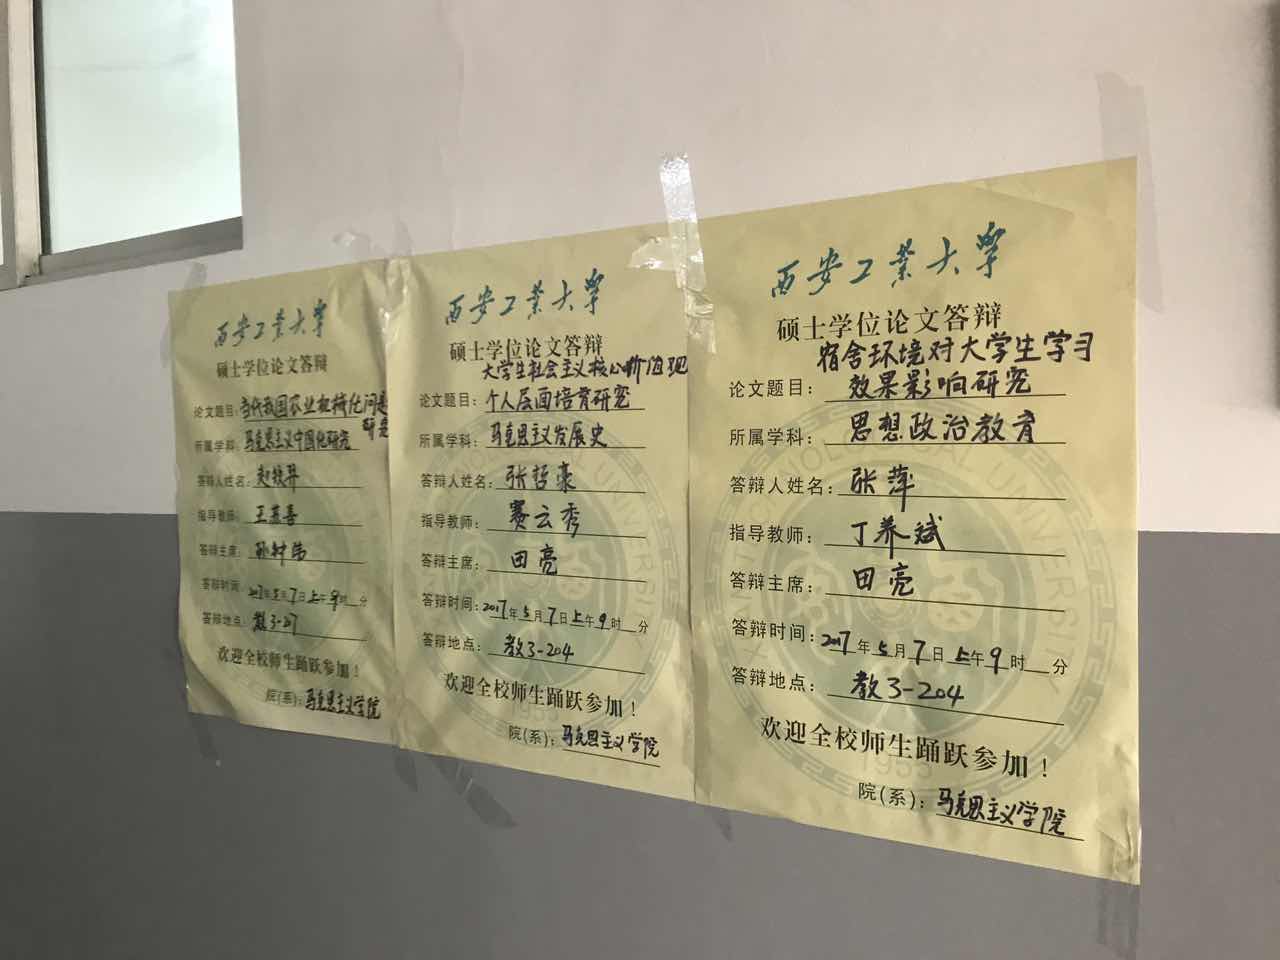 西安工业大学
硕士学位论文答辩
论文题目：当代我国农业机械化问题
研究
所属学科：马克思主义中国化研究
答辩人姓名：
指导教师：
答辩主席：
答辩时间：2017年5月7日上午9时 分
答辩地点：
欢迎全校师生踊跃参加！
院(系)：马克思主义学院
西安工业大学
硕士学位论文答辩
大学生社会主义核心价值观
论文题目：个人层面培育研究
所属学科：马克思主义发展史
答辩人姓名：张哲豪
指导教师：赛云秀
答辩主席：田亮
答辩时间：2017年5月7日上午9时 分
答辩地点：教3-204
欢迎全校师生踊跃参加！
院(系)：马克思主义学院
西安工业大学
硕士学位论文答辩
宿舍环境对大学生学习
论文题目：效果影响研究
所属学科：思想政治教育
答辩人姓名：张萍
指导教师：丁养斌
答辩主席：田亮
答辩时间：2017年5月7日上午9时 分
答辩地点：教3-204
欢迎全校师生踊跃参加！
院(系)：马克思主义学院